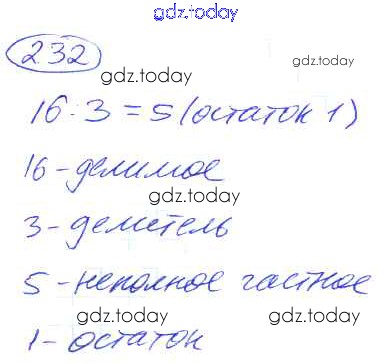 gdz.today
232
gdz.today
16:3=5(остаток 1)
16-делимое
gdz.today
3-делитель
5-неполное частное
gdz.today gdz.today
1-остаток